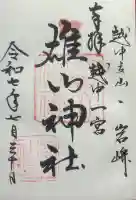 越中立山 岩峅
奉拝 越中一宮
雄山神社
令和七年七月三十日